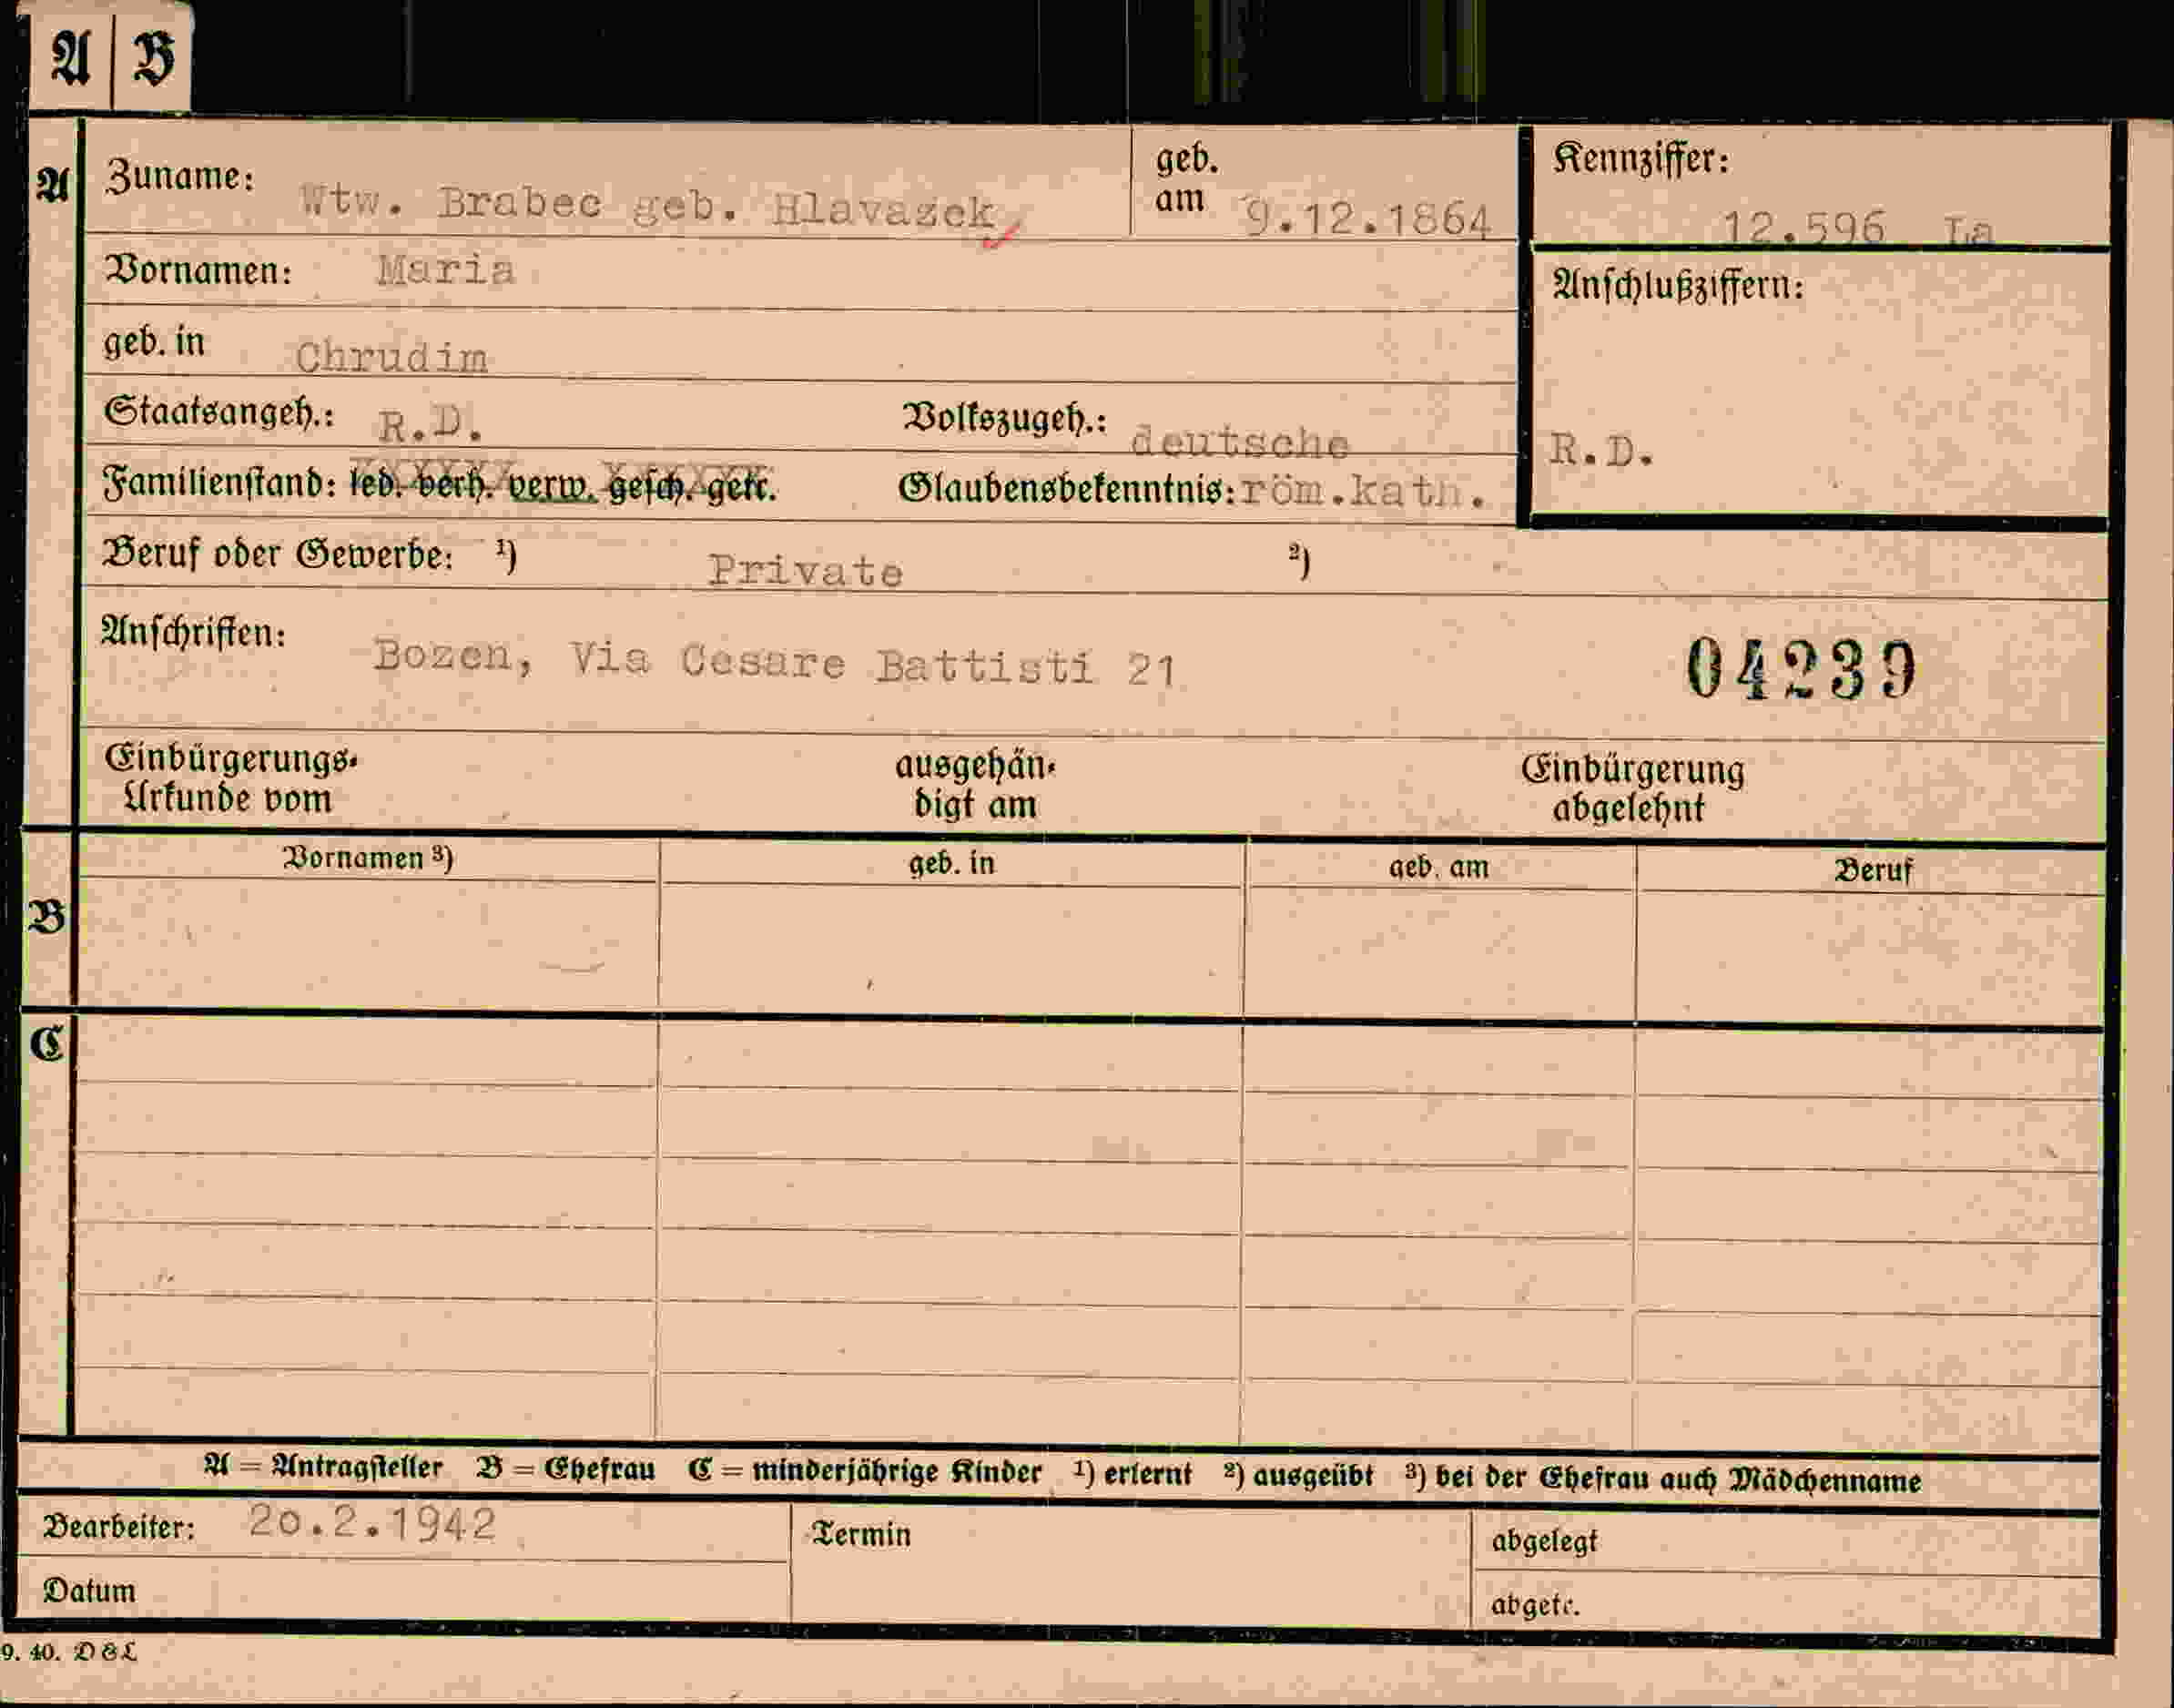 A B
A
Zuname: Wtw. Brabec geb. Hlavasek
geb. am 9.12.1864
Kennziffer: 12.596 La
Vornamen: Maria
Anschlußziffern:
R.D.
geb. in Chrudim
Staatsangeh.: R.D. Volkszugeh.: deutsche
Familienstand: led. verh. verw. gesch. getr. Glaubensbekenntnis: röm.kath.
Beruf oder Gewerbe: ¹) Private ²)
Anschriften: Bozen, Via Cesare Battisti 21
04239
Einbürgerungs-
Urkunde vom
ausgehän-
digt am
Einbürgerung
abgelehnt
Vornamen ³) geb. in geb. am Beruf
B
C
A = Antragsteller B = Ehefrau C = minderjährige Kinder ¹) erlernt ²) ausgeübt ³) bei der Ehefrau auch Mädchenname
Bearbeiter: 20.2.1942
Termin
abgelegt
Datum
abgetr.
9. 40. D&L